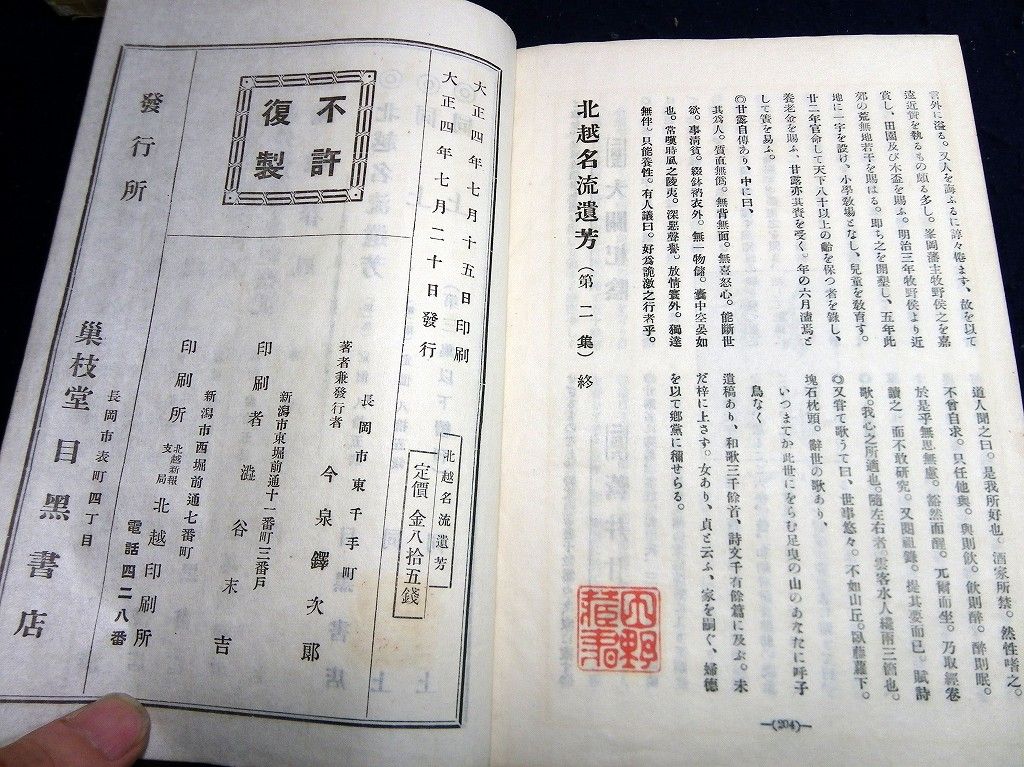 言外に溢る。又人を誨ふるに諄々倦まず、故を以て
遠近贄を執るもの頗る多し。峯岡藩主牧野侯之を嘉
賞し、田園及び木盃を賜ふ。明治三年牧野侯より近
郊の荒無地若干を賜はる。即ち之を開墾し、五年此
地に一宇を設け、小學敎場となし、兒童を敎育す。
廿二年官命して天下八十以上の齡を保つ者を錄し、
養老金を賜ふ、甘露亦其賚を受く。年の六月溘焉と
して簀を易ふ。
◎甘露自傳あり、中に曰、
其爲人。質直無僞。無背無面。無喜怒心。能斷世
欲。事淸貧。綴鉢衲衣外。無一物儲。囊中空晏如
也。常嘆時風之陵夷。深惡聲譽。放情寰外。獨達
無伴。只能養性。有人議曰。好爲詭激之行者乎。
北越名流遺芳（第二集）終
道人聞之曰。是我所好也。酒家所禁。然性嗜之。
不曾自求。只任他與。與則飮。飮則醉。醉則眠。
於是乎無思無慮。豁然而醒。兀爾而坐。乃取經卷
讀之。而不敢硏究。又閲祖錄。提其要而已。賦詩
歌。我心之所適也。隨左右者。雲客水人纔兩三箇也。
◎又甞て歌うて曰、世事悠々。不如山丘。臥藤蘿下。
塊石枕頭。辭世の歌あり、
いつまてか此世にをらむ足曳の山のあなたに呼子
鳥なく
遺稿あり、和歌三千餘首、詩文千有餘篇に及ぶ。未
だ梓に上さす。女あり、貞と云ふ、家を嗣ぐ、婦德
を以て鄕黨に稱せらる。
大野
藏書
(204)
大正四年七月十五日印刷
大正四年七月二十日發行
不許
復製
北越名流遺芳
定價金八拾五錢
長岡市東千手町
著者兼發行者 今泉鐸次郎
新潟市東堀前通十一番町三番戶
印刷者 澁谷末吉
新潟市西堀前通七番町
印刷所 北越新報支局 北越印刷所
發行所
長岡市表町四丁目
電話四二八番
巢枝堂 目黑書店